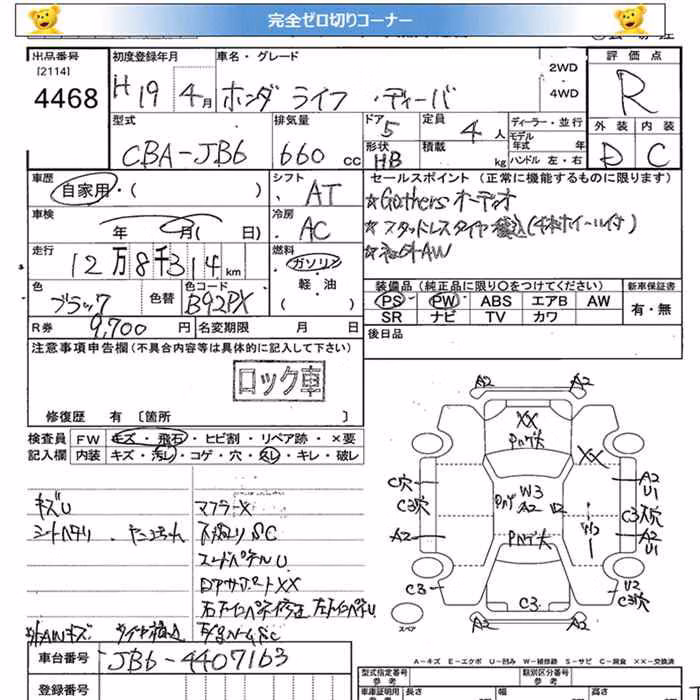 完全ゼロ切りコーナー
出品番号
[2114]
4468
初度登録年月
H19 4月
車名・グレード
ホンダ ライフ ディーバ
2WD
4WD
評価点
R
外装 内装
D C
型式
CBA-JB6
排気量
660 cc
ドア
5
形状
HB
定員
4人
積載
kg
ディーラー・並行
モデル
年式 年
ハンドル 左・右
車歴
自家用・( )
シフト
AT
車検
年 月( 日)
冷房
AC
走行
12万8千314km
燃料
ガソリン
軽・油
( )
色
ブラック
色替
色コード
B92PX
R券 9,700円
名変期限 月 日
セールスポイント(正常に機能するものに限ります)
★Gathersオーディオ
★スタッドレスタイヤ積込
★社外AW
装備品(純正品に限り○をつけてください)
PS PW ABS エアB AW
SR ナビ TV カワ
新車保証書
有・無
後日品
注意事項申告欄(不具合内容等は具体的に記入して下さい)
ロック車
修復歴 有〔箇所 〕
検査員 FW キズ・飛石・ヒビ割・リペア跡・×要
記入欄 内装 キズ・汚レ・コゲ・穴・スレ・キレ・破レ
キズU
シートヘタリ
マフラーX
下廻りSC
エンドパネルU
ロアサポートXX
外AWキズ
タイヤ積込
車台番号 JB6-4407163
登録番号
A2 A2
XX
XX
C穴
C3穴
A2
W3
A2
U2
W2
A2
U1
C3穴
A2
U1
C3
C3
U2
C3穴
A2 A2
スペア
A-キズ E-エクボ U-凹み W-補修跡 S-サビ C-腐食 XX-交換済
型式指定番号
参考
類別区分番号
参考
車庫証明用
長さ 幅 高さ